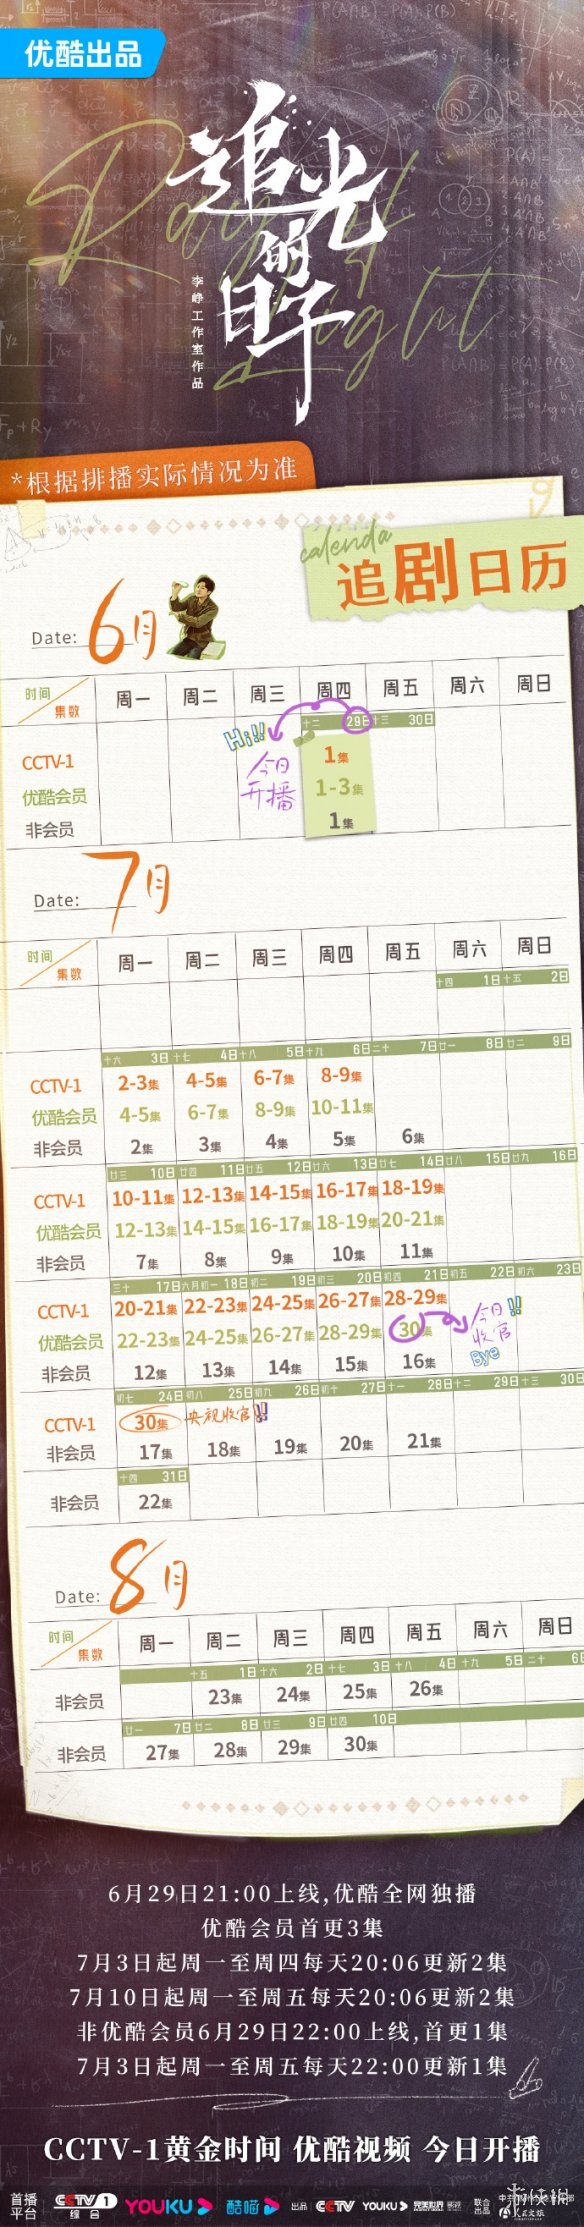 优酷出品
Ray of Light
追光的日子
李峥工作室作品
*根据排播实际情况为准
calenda
追剧日历
Date: 6月
时间 集数 周一 周二 周三 周四 周五 周六 周日
十二 29日 十三 30日
Hi!!
今日开播
CCTV-1 1集
优酷会员 1-3集
非会员 1集
Date: 7月
时间 集数 周一 周二 周三 周四 周五 周六 周日
十四 1日 十五 2日
十六 3日 十七 4日 十八 5日 十九 6日 二十 7日 廿一 8日 廿二 9日
CCTV-1 2-3集 4-5集 6-7集 8-9集
优酷会员 4-5集 6-7集 8-9集 10-11集
非会员 2集 3集 4集 5集 6集
廿三 10日 廿四 11日 廿五 12日 廿六 13日 廿七 14日 廿八 15日 廿九 16日
CCTV-1 10-11集 12-13集 14-15集 16-17集 18-19集
优酷会员 12-13集 14-15集 16-17集 18-19集 20-21集
非会员 7集 8集 9集 10集 11集
三十 17日 六月初一 18日 初二 19日 初三 20日 初四 21日 初五 22日 初六 23日
CCTV-1 20-21集 22-23集 24-25集 26-27集 28-29集
优酷会员 22-23集 24-25集 26-27集 28-29集 30集
今日收官!!
Bye
非会员 12集 13集 14集 15集 16集
初七 24日 初八 25日 初九 26日 初十 27日 十一 28日 十二 29日 十三 30日
CCTV-1 30集 央视收官!!
非会员 17集 18集 19集 20集 21集
十四 31日
非会员 22集
Date: 8月
时间 集数 周一 周二 周三 周四 周五 周六 周日
十五 1日 十六 2日 十七 3日 十八 4日 十九 5日 二十 6日
非会员 23集 24集 25集 26集
廿一 7日 廿二 8日 廿三 9日 廿四 10日
非会员 27集 28集 29集 30集
6月29日21:00上线,优酷全网独播
优酷会员首更3集
7月3日起周一至周四每天20:06更新2集
7月10日起周一至周五每天20:06更新2集
非优酷会员6月29日22:00上线,首更1集
7月3日起周一至周五每天22:00更新1集
CCTV-1黄金时间 优酷视频 今日开播
首播平台 CCTV 1 综合 YOUKU 酷喵 出品 CCTV YOUKU 完美世界 联合出品